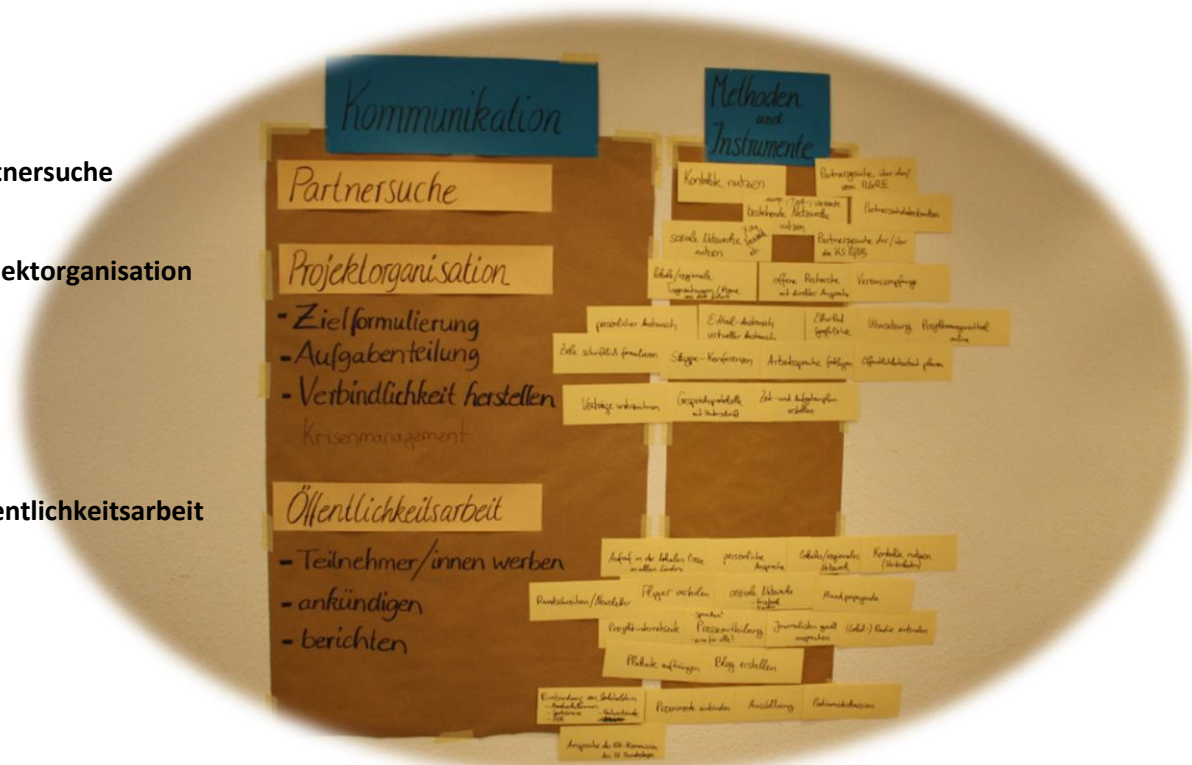 tnersuche
ektorganisation
entlichkeitsarbeit
Kommunikation
Partnersuche
Projektorganisation
- Zielformulierung
- Aufgabenteilung
- Verbindlichkeit herstellen
Krisenmanagement
Öffentlichkeitsarbeit
- Teilnehmer/innen werben
- ankündigen
- berichten
Methoden
und
Instrumente
Kontakte nutzen
Partnergesuche über
vom RGRE
bestehende Netzwerke
nutzen
Partnersuchdatenbanken
soziale Netzwerke
nutzen
Partnergesuche
die KS EfBB
lokale/regionale
offene Recherche
mit direkter Ansprache
Vereinsempfänge
persönlicher Austausch
E-Mail-Austausch
virtueller Austausch
Übersetzung
online
Ziele schriftlich formulieren
Skype-Konferenzen
Arbeitssprache festlegen
Öffentlichkeitsarbeit planen
Verträge unterzeichnen
Gesprächsprotokolle
mit Unterschrift
Zeit- und Aufgabenplan
erstellen
Aufruf in der lokalen Presse
in allen Ländern
persönliche
Ansprache
lokales/regionales
Netzwerk
Kontakte nutzen
Rundschreiben/Newsletter
Flyer verteilen
soziale Netzwerke
Mundpropaganda
Projektinternetseite
Pressemitteilung
Journalisten
ansprechen
(Lokal-) Radio einbinden
Plakate aufhängen
Blog erstellen
Einbindung von
Prominente einbinden
Ausstellung
Podiumsdiskussion
Ansprache der EU-Kommission